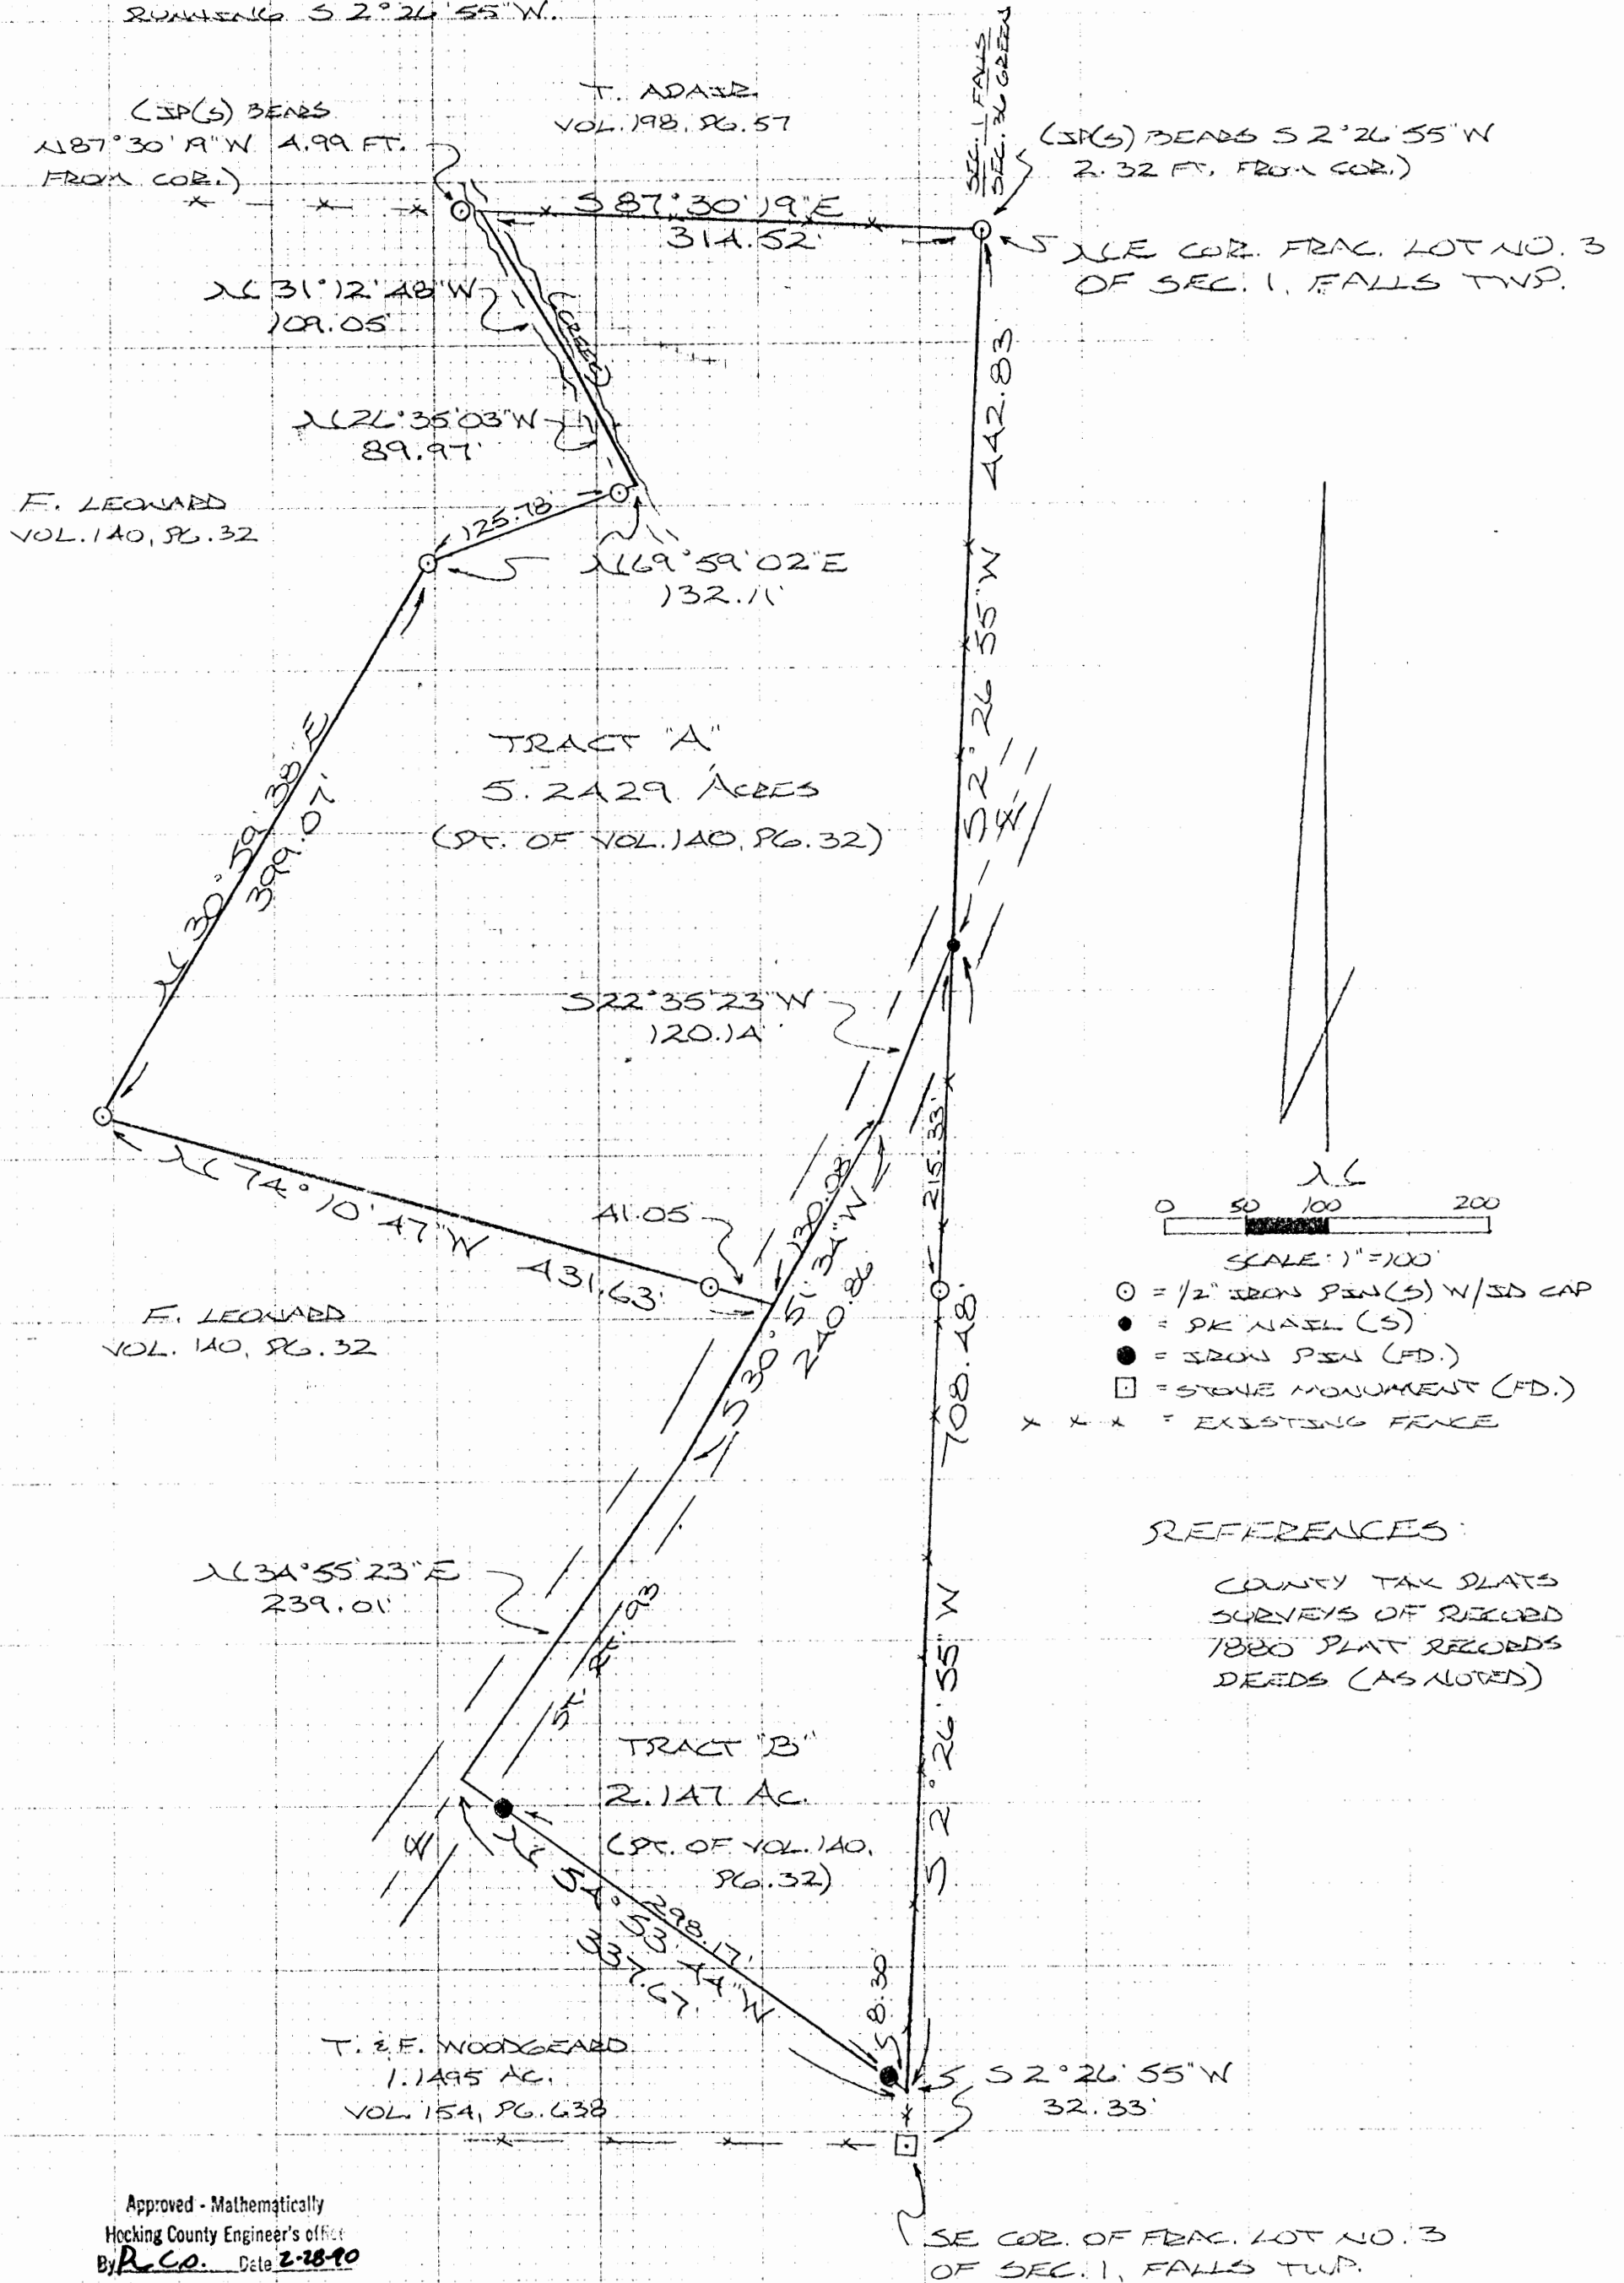 RUNNING S 2°26'55"W.
T. ADAIR
VOL. 198, PG. 57
(IP(S) BEARS
N87°30'19"W 4.99 FT.
FROM COR.)
SEC. 1 FALLS
SEC. 36 GREEN
(IP(S) BEARS S 2°26'55"W
2.32 FT. FROM COR.)
S 87°30'19"E
314.52'
NE COR. FRAC. LOT NO. 3
OF SEC. 1, FALLS TWP.
N 31°12'48"W
109.05'
CREEK
442.83
N26°35'03"W
89.97'
F. LEONARD
VOL. 140, PG. 32
125.78
N69°59'02"E
132.11'
S 2°26'55"W
TRACT "A"
5.2429 ACRES
(PT. OF VOL. 140, PG. 32)
399.07'
S22°35'23"W
120.14'
N 74°10'47"W
431.63'
41.05
215.33'
240.86
N
0 50 100 200
SCALE: 1"=100'
= 1/2" IRON PIN(S) W/ID CAP
= PK NAIL (S)
= IRON PIN (FD.)
= STONE MONUMENT (FD.)
x x x = EXISTING FENCE
F. LEONARD
VOL. 140, PG. 32
708.48'
REFERENCES:
COUNTY TAX PLATS
SURVEYS OF RECORD
1880 PLAT RECORDS
DEEDS (AS NOTED)
N34°55'23"E
239.01'
S 2°26'55"W
TRACT "B"
2.147 AC.
(PT. OF VOL. 140,
PG. 32)
298.17'
337.67'
58.30
T. & F. WOODGEARD
1.1495 AC.
VOL. 154, PG. 638
S2°26'55"W
32.33'
SE COR. OF FRAC. LOT NO. 3
OF SEC. 1, FALLS TWP.
Approved - Mathematically
Hocking County Engineer's office
By R. Co. Date 2-28-90